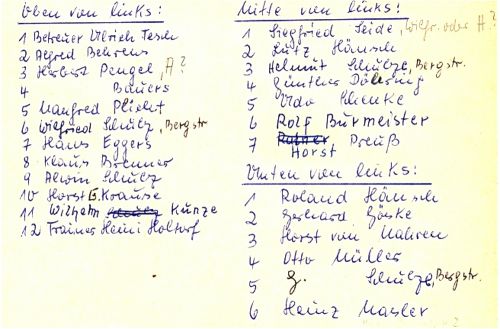 Oben von links:
1 Betreuer Ullrich Tesch
2 Alfred Behrens
3 Herbert Pengel, A?
4 Bauers
5 Manfred Plieht
6 Wilfried Schulz, Bergstr
7 Hans Eggers
8 Klaus Brenner
9 Alwin Schulz
10 Horst G. Krause
11 Wilhelm Kunze
12 Trainer Heini Holtorf
Mitte von links:
1 Siegfried Seide, Wilfr. oder H?
2 Lutz Hänsch
3 Helmut Schulze, Bergstr.
4 Günther Döhring
5 Udo
6 Rolf Burmeister
7 Preuß
Horst
Unten von links:
1 Roland Hänsch
2 Gerhard Göske
3 Horst von Mahren
4 Otto Müller
5 G. Schulze, Bergstr.
6 Heinz Masler